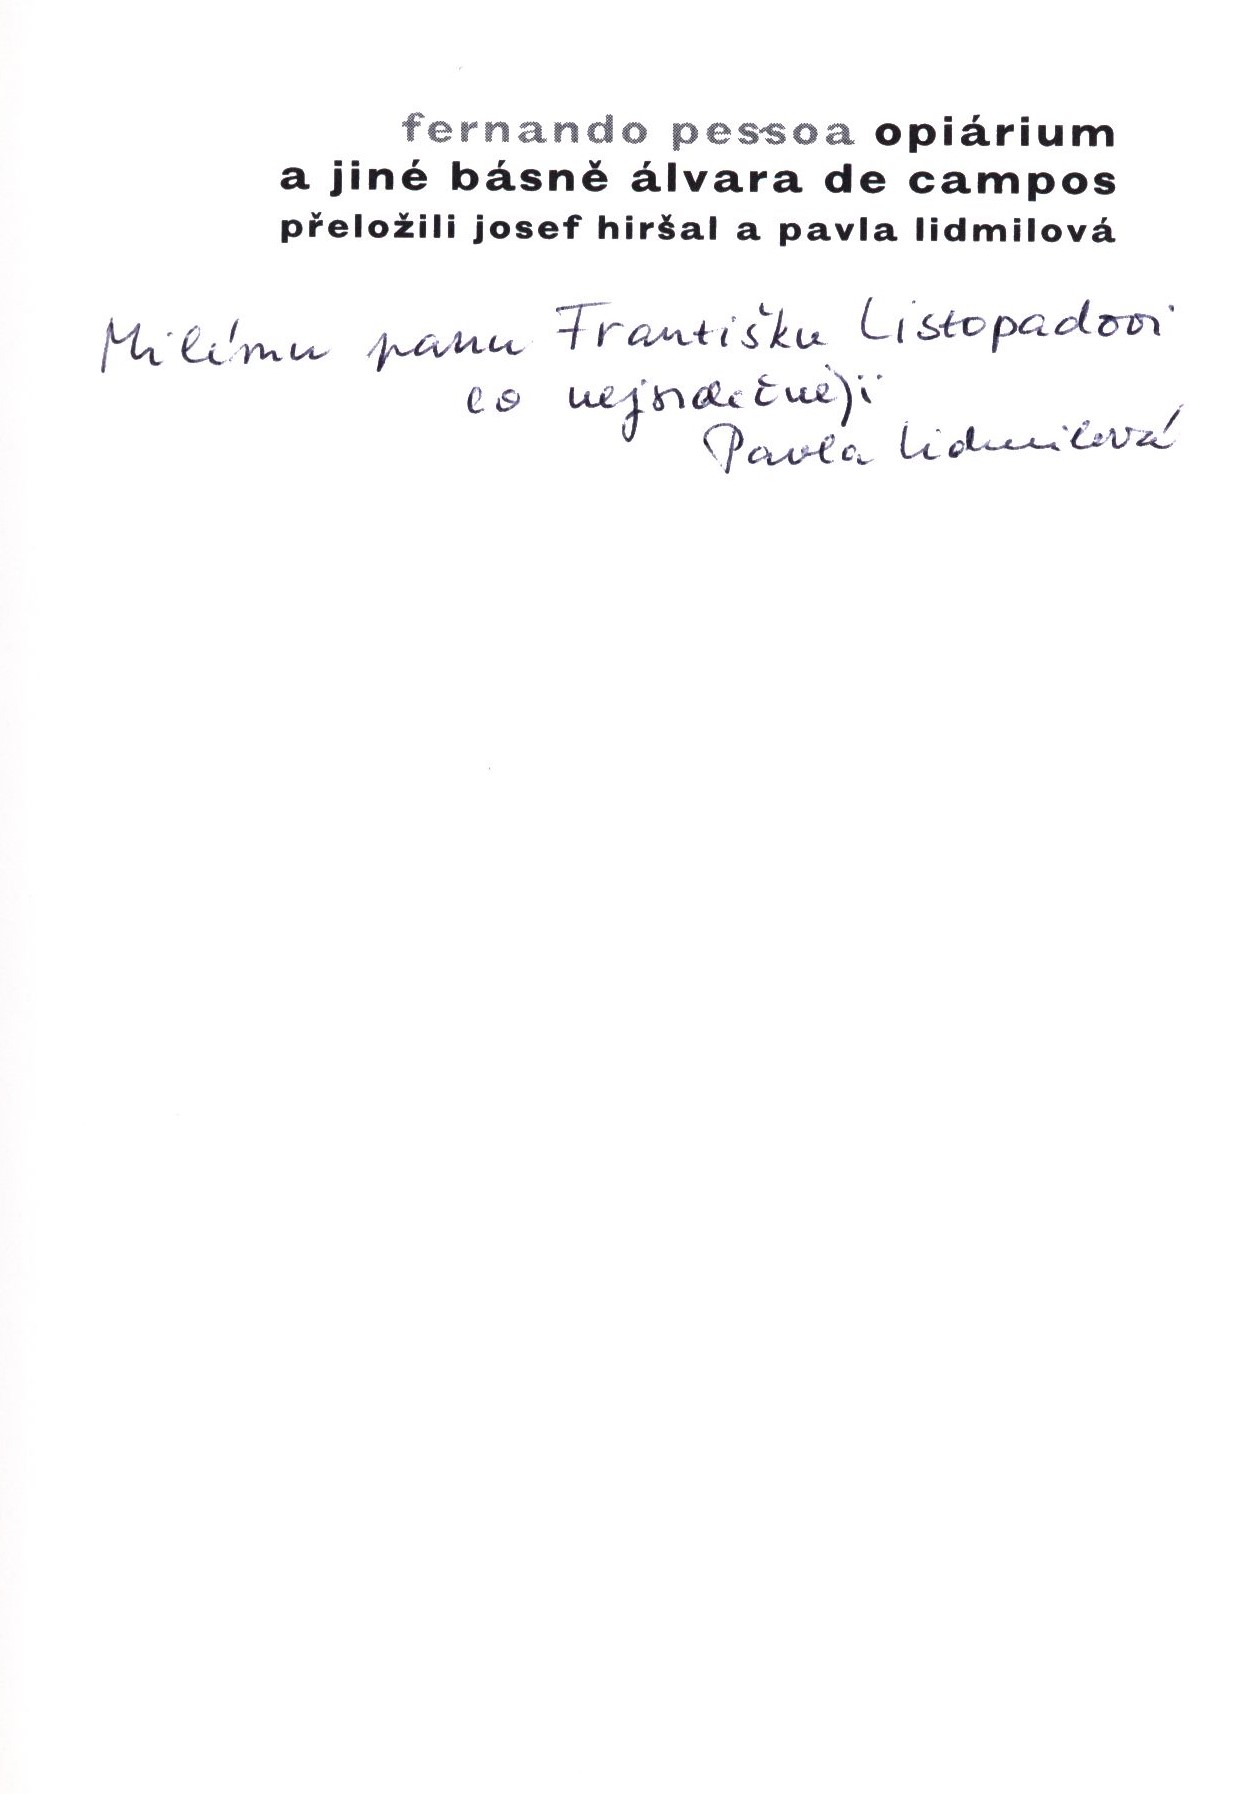 fernando pessoa opiárium
a jiné básně álvara de campos
přeložili josef hiršal a pavla lidmilová
Milému panu Františku Listopadovi
co nejsrdečněji
Pavla Lidmilová